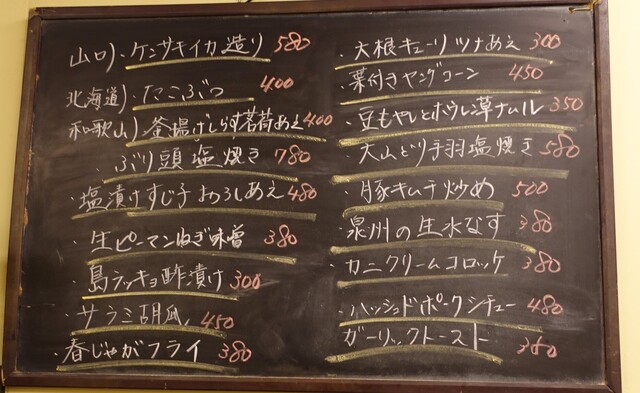 山口)・ケンサキイカ造り 580
北海道)・たこぶつ 400
和歌山)釜揚げしらす茗荷あえ 400
・ぶり頭塩焼き 780
・塩漬けすじ子おろしあえ 480
・生ピーマンねぎ味噌 380
・島ラッキョ酢漬け 300
・サラミ胡瓜 450
・春じゃがフライ 380
・大根キューリツナあえ 300
・葉付きヤングコーン 450
・豆もやしとホウレン草ナムル 350
・大山どり手羽塩焼き 580
・豚キムチ炒め 500
・泉州の生水なす 380
・カニクリームコロッケ 380
・ハッシュドポークシチュー 480
ガーリックトースト 380